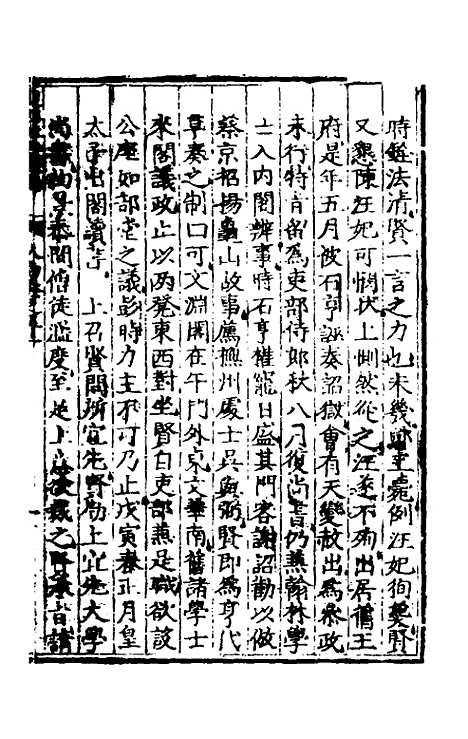 時銓法清賢一言之力也未幾郕王薨例汪妃徇葬賢
又懇陳汪妃可憫狀上惻然從之汪遂不殉出居舊王
府是年五月彼石亨誣奏詔獄會有天變赦出爲叅政
未行特旨留爲吏部侍郎秋八月復尚書仍蕪翰林學
士入内閣辨事時石亨權寵日盛其門客謝詔勸以做
蔡京招揚龜山故事薦撫州處士吳與弼賢即爲亨代
草奏之制曰可文淵閣在午門外東文華南舊諸學士
來閣議政止以两凳東西對坐賢自吏部蕪是職欲設
公座如部堂之議彭時力主不可乃止戊寅春正月皇
太子出閣讀書　上召賢問所宜先賢勸上宜先大學
尚書 閒僧徒濫度至是上 之賢承旨請